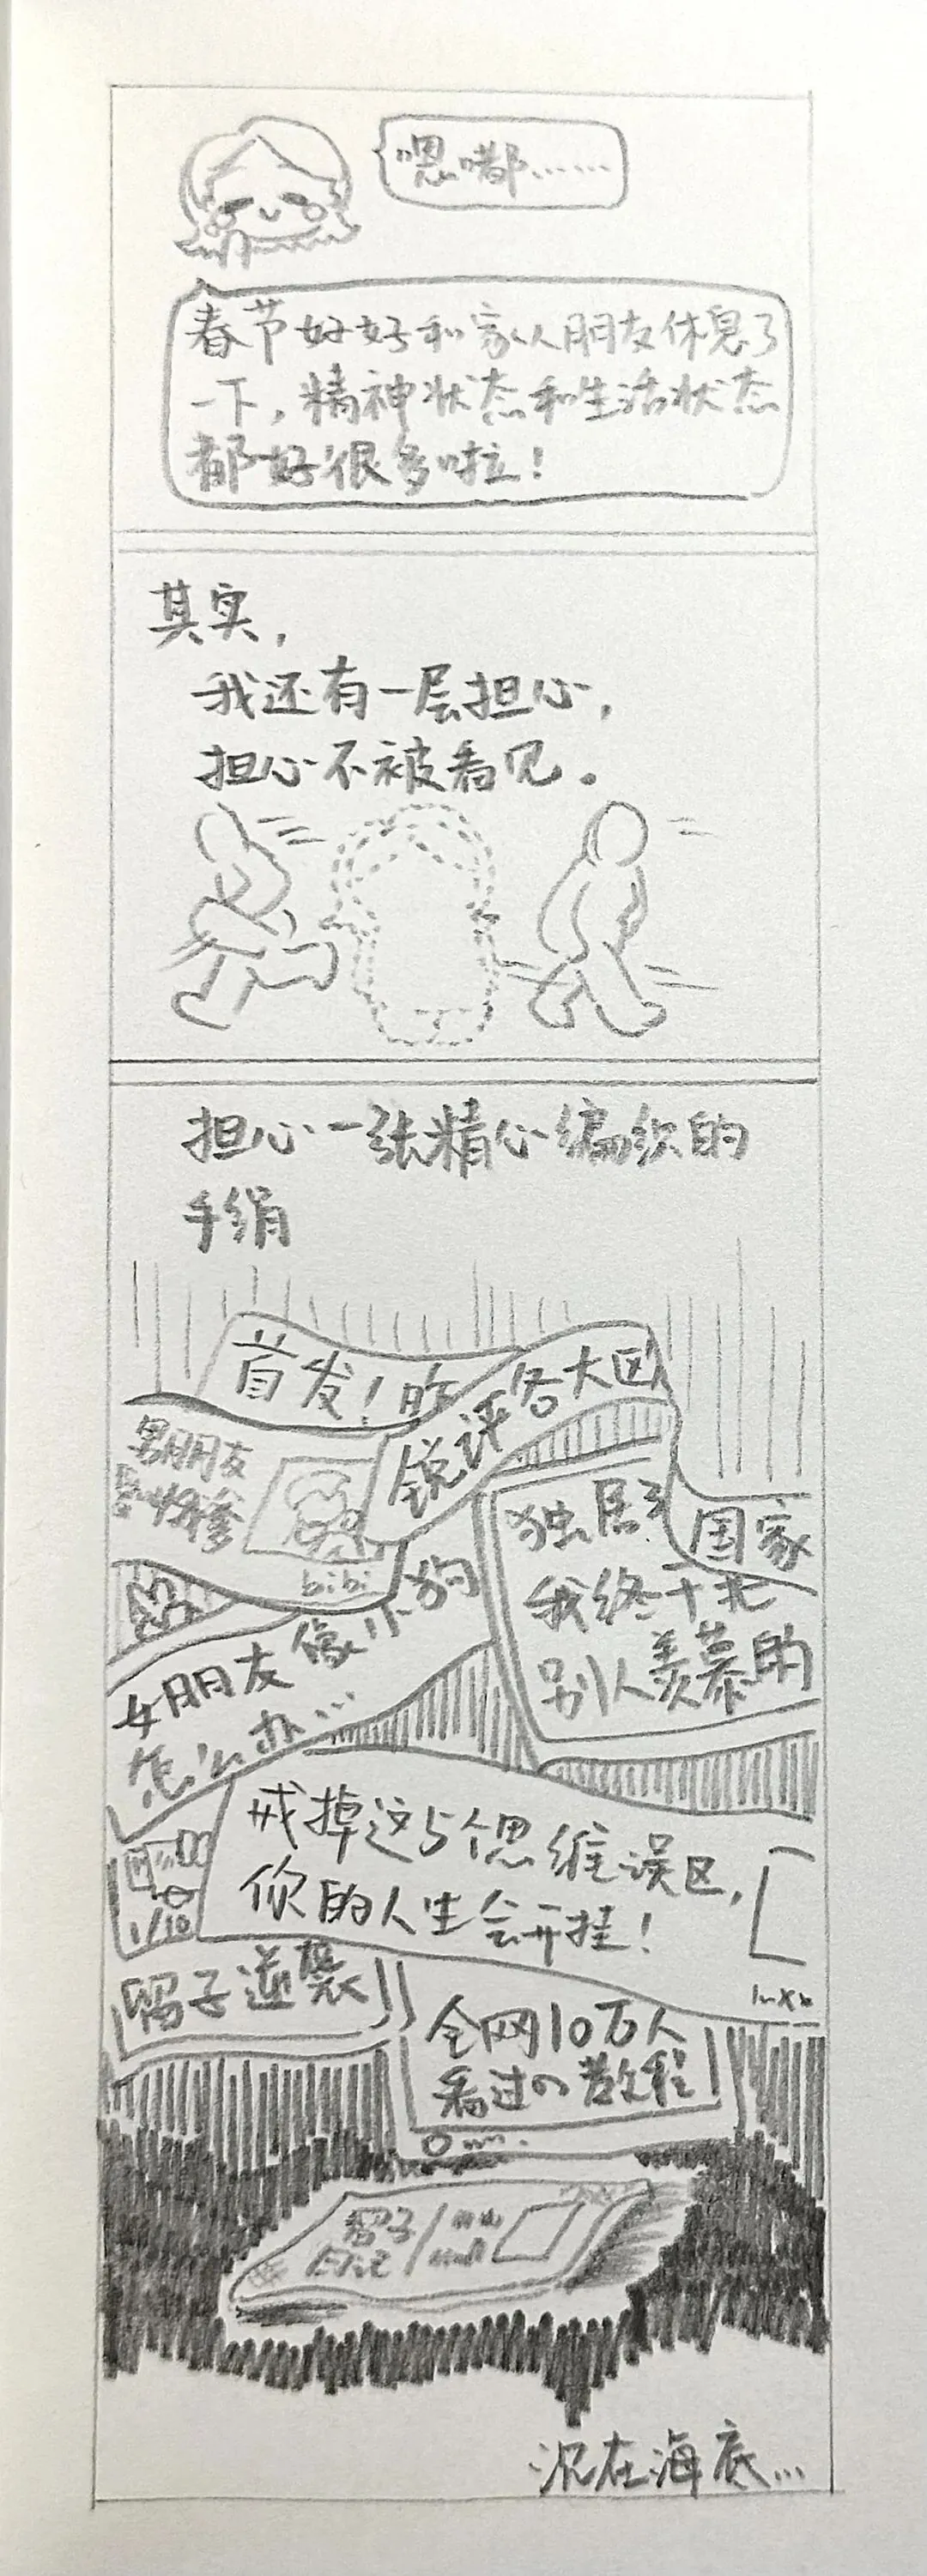 嗯嘟……
春节好好和家人朋友休息了
一下，精神状态和生活状态
都好很多啦！
其实，
我还有一层担心，
担心不被看见。
担心一张精心编织的
手绢
首发！昨
锐评各大区
男朋友
bibi
独居
国家
我终于
别人羡慕的
女朋友像小狗
怎么办…
戒掉这5个思维误区，
你的人生会开挂！
1/10
留子逆袭
全网10万人
看过の教程
留子
日记
沉在海底…